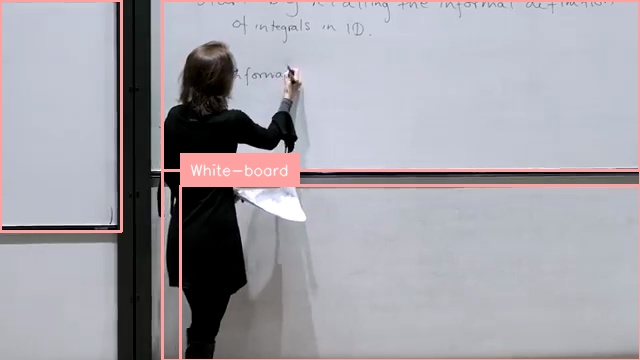 recalling the informal definition
of integrals in 1D.
informa
White-board